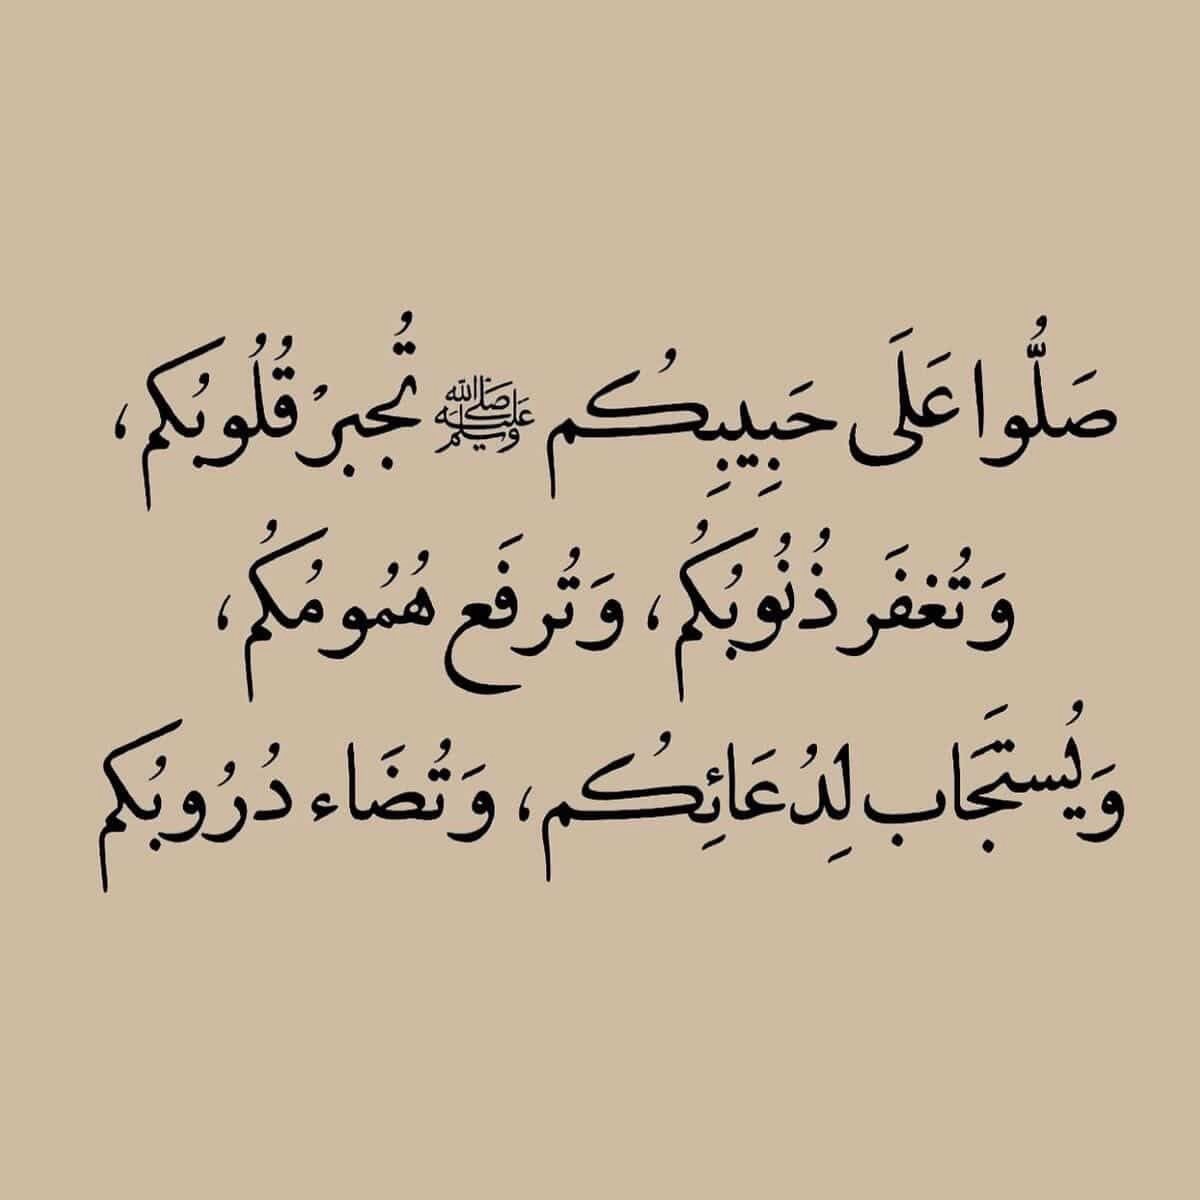 صَلُّوا عَلَى حَبِيبِكُم ﷺ تُجبرْ قُلُوبُكم،
وَتُغفَر ذُنُوبُكُم، وَتُرفَع هُمُومُكُم،
وَيُستَجَاب لِدُعَائِكُم، وَتُضَاء دُرُوبُكم